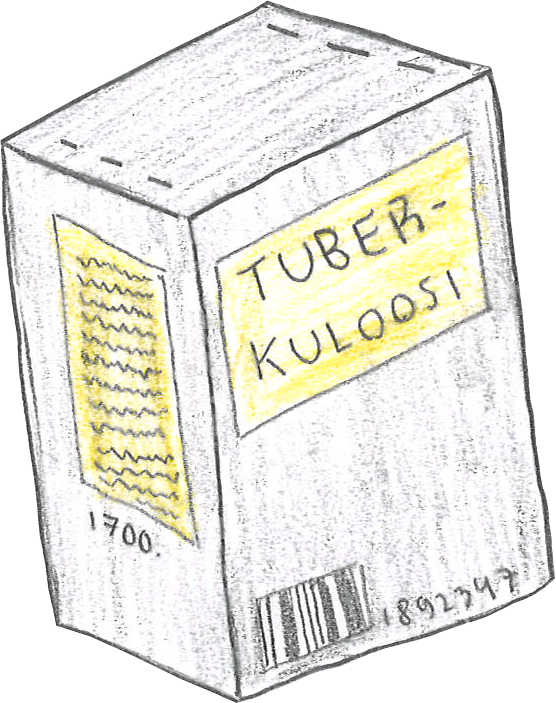 TUBER-
KULOOSI
1700.
1892347